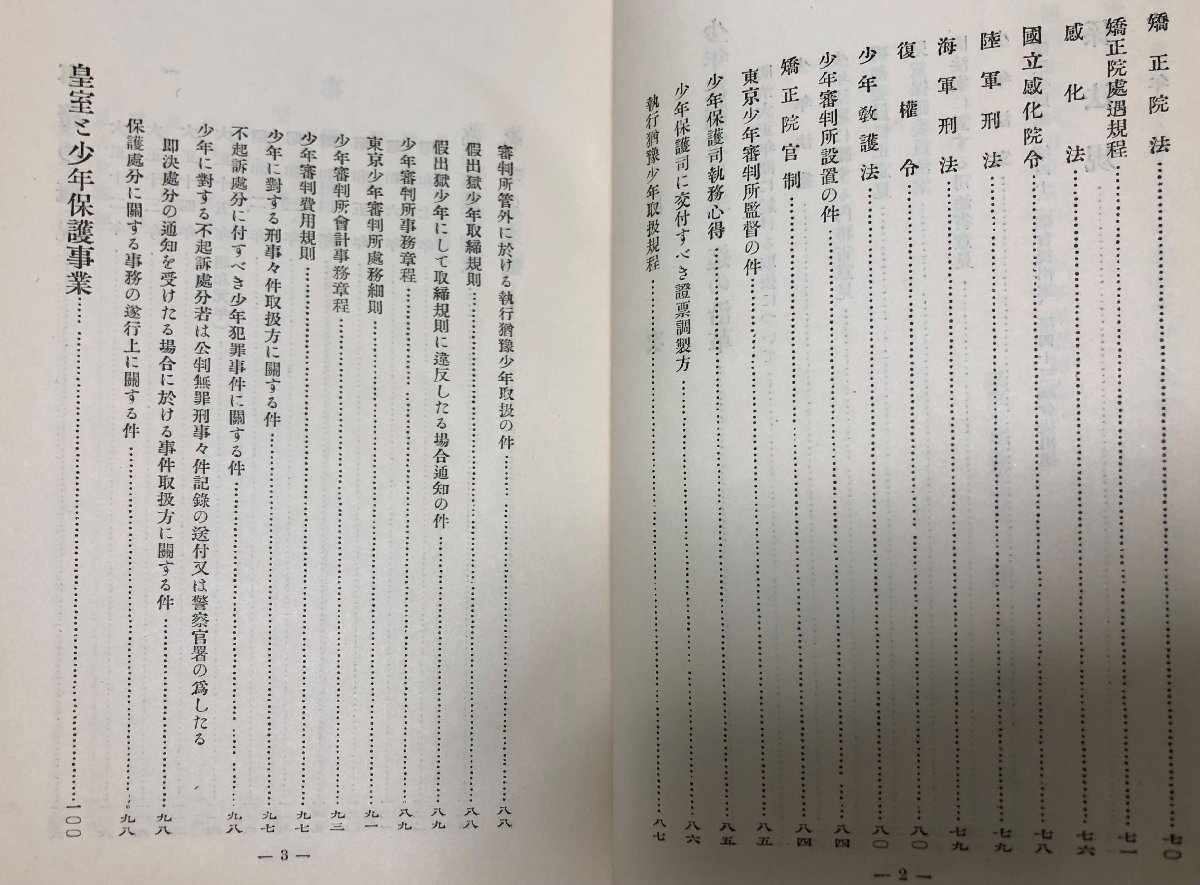 矯正院法……七〇
矯正院處遇規程……七一
感化法……七六
國立感化院令……七八
陸軍刑法……七九
海軍刑法……七九
復權令……八〇
少年敎護法……八〇
少年審判所設置の件……八四
矯正院官制……八四
東京少年審判所監督の件……八五
少年保護司執務心得……八五
少年保護司に交付すべき證票調製方……八六
執行猶豫少年取扱規程……八七
— 2 —
審判所管外に於ける執行猶豫少年取扱の件……八八
假出獄少年取締規則……八八
假出獄少年にして取締規則に違反したる場合通知の件……八九
少年審判所事務章程……八九
東京少年審判所處務細則……九一
少年審判所會計事務章程……九三
少年審判費用規則……九七
少年に對する刑事々件取扱方に關する件……九七
不起訴處分に付すべき少年犯罪事件に關する件……九八
少年に對する不起訴處分若は公判無罪刑事々件記錄の送付又は警察官署の爲したる
卽決處分の通知を受けたる場合に於ける事件取扱方に關する件……九八
保護處分に關する事務の遂行上に關する件……九八
皇室と少年保護事業……一〇〇
— 3 —